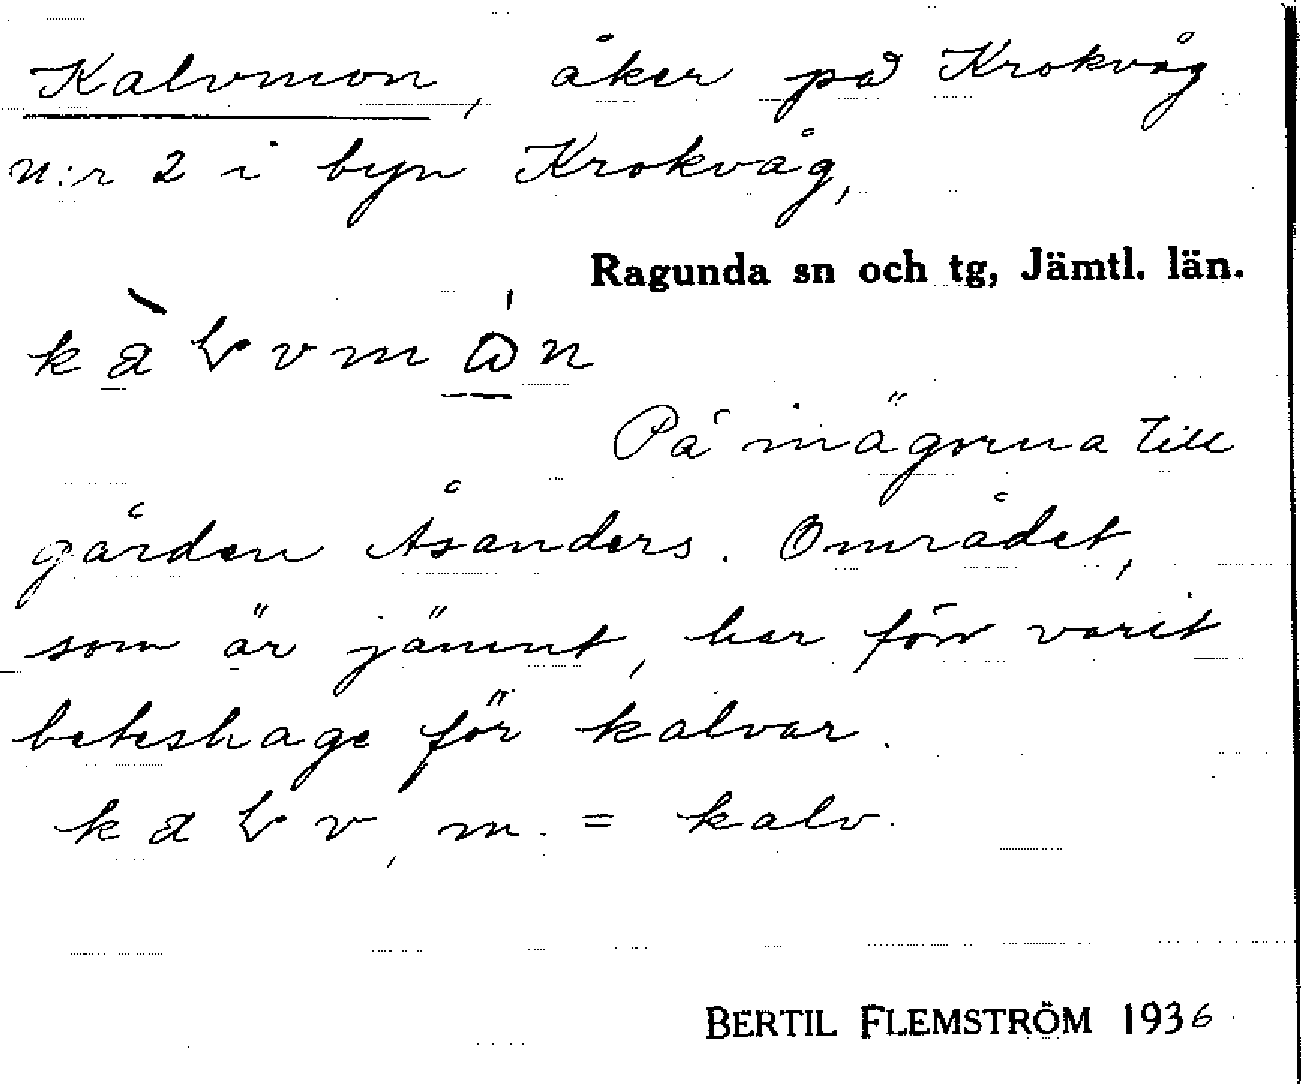 Kalvmon, åker på Krokvåg
n:r 2 i byn Krokvåg,
Ragunda sn och tg, Jämtl. län.
På inägorna till
gården Åsanders. Området,
som är jämnt, har förr varit
beteshage för kalvar.
m. = kalv.
BERTIL FLEMSTRÖM 1936